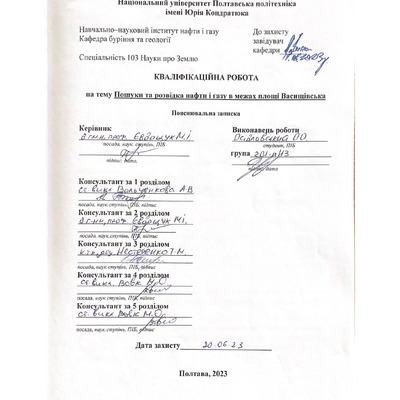 Національний університет Полтавська політехніка
імені Юрія Кондратюка
Навчально-науковий інститут нафти і газу
Кафедра буріння та геології
Спеціальність 103 Науки про Землю
До захисту
завідувач
кафедри
КВАЛІФІКАЦІЙНА РОБОТА
на тему Пошуки та розвідка нафти і газу в межах площі Васищівська
Пояснювальна записка
Керівник
д.г.м.н., проф. Євдощук М.І.
посада, наук. ступінь, ПІБ
підпис, дата,
Виконавець роботи
студент, ПІБ
група 201-пНЗ
підпис, дата
Консультант за 1 розділом
ст. викл. Вольченкова А.В.
посада, наук.ступінь, ПІБ, підпис
Консультант за 2 розділом
д.г.м.н., проф. Євдощук М.І.
посада, наук.ступінь, ПІБ, підпис
Консультант за 3 розділом
Нестеренко Т.М.
посада, наук.ступінь, ПІБ, підпис
Консультант за 4 розділом
ст. викл. Вовк М.О.
посада, наук.ступінь, ПІБ, підпис
Консультант за 5 розділом
ст. викл. Вовк М.О.
посада, наук.ступінь, ПІБ, підпис
Дата захисту 20.06.23
Полтава, 2023